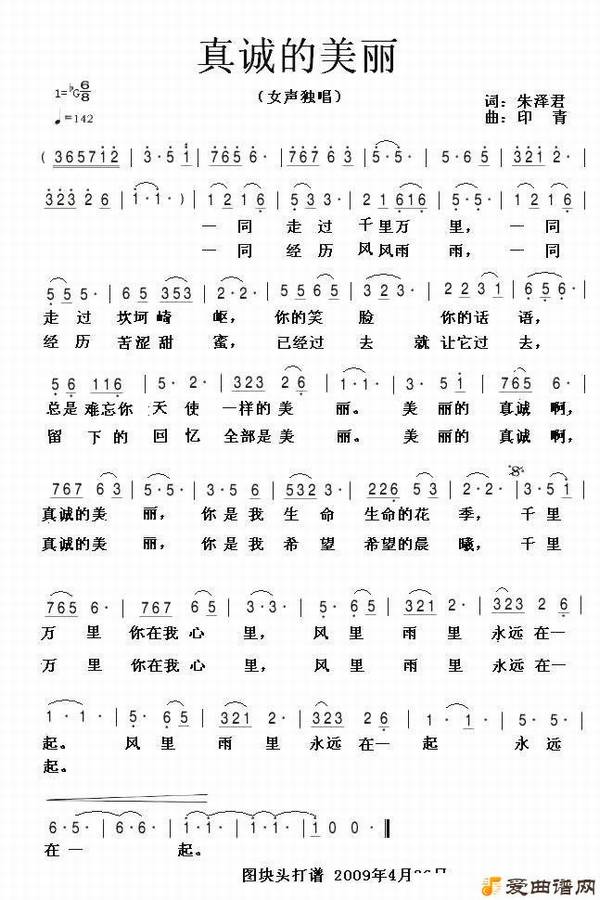 真诚的美丽
1=♭G 6/8
（女声独唱）
♩=142
词：朱泽君
曲：印 青
( 365712 | 3·51 | 765 6· | 767 63 | 5·5· | 5·5· | 3·51 | 765 6· |
323 26 | 1·1· ) | 3·51 | 765 6· | 3·52 | 21616 | 5·5· | 1216 |
一同 走 过 千里万 里， 一同
一同 经 历 风风雨 雨， 一同
5 5 5· | 65 353 | 2·2· | 5565 | 323· | 2231 | 656· |
走 过 坎坷崎 岖， 你的笑 脸 你的话 语，
经 历 苦涩甜 蜜， 已经过 去 就让它过 去，
56 116 | 5·2· | 323 26 | 1·1· | 3·51 | 765 6· |
总是难忘你 天使 一样的美 丽。 美 丽的 真诚啊，
留下的 回忆 全部是美 丽。 美 丽的 真诚啊，
767 63 | 5·5· | 3·56 | 532 3· | 226 6· | 2·2· | 3·51 |
真诚的美 丽， 你是我 生 命 生命的花 季， 千里
真诚的美 丽， 你是我 希 望 希望的晨 曦， 千里
765 6· | 767 65 | 3·3· | 5·65 | 321 2· | 323 26 |
万 里 你在我 心 里， 风里 雨 里 永远在一
万 里 你在我 心 里， 风里 雨 里 永远在一
1·1· | 5·65 | 321 2· | 323 26 | 1·1· | 5·3· |
起。 风里 雨 里 永远在一 起 永 远
起。
6·5· | 6·6· | 1·1· | 1·1· | 100· ‖
在 一 起。
图块头打谱 2009年4月
爱曲谱网